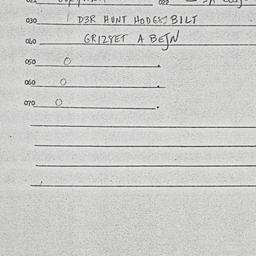 022
030 D3R HUNT HODGES BILT
040 GRIZYET A BEJN
050 O
060 O
070 O